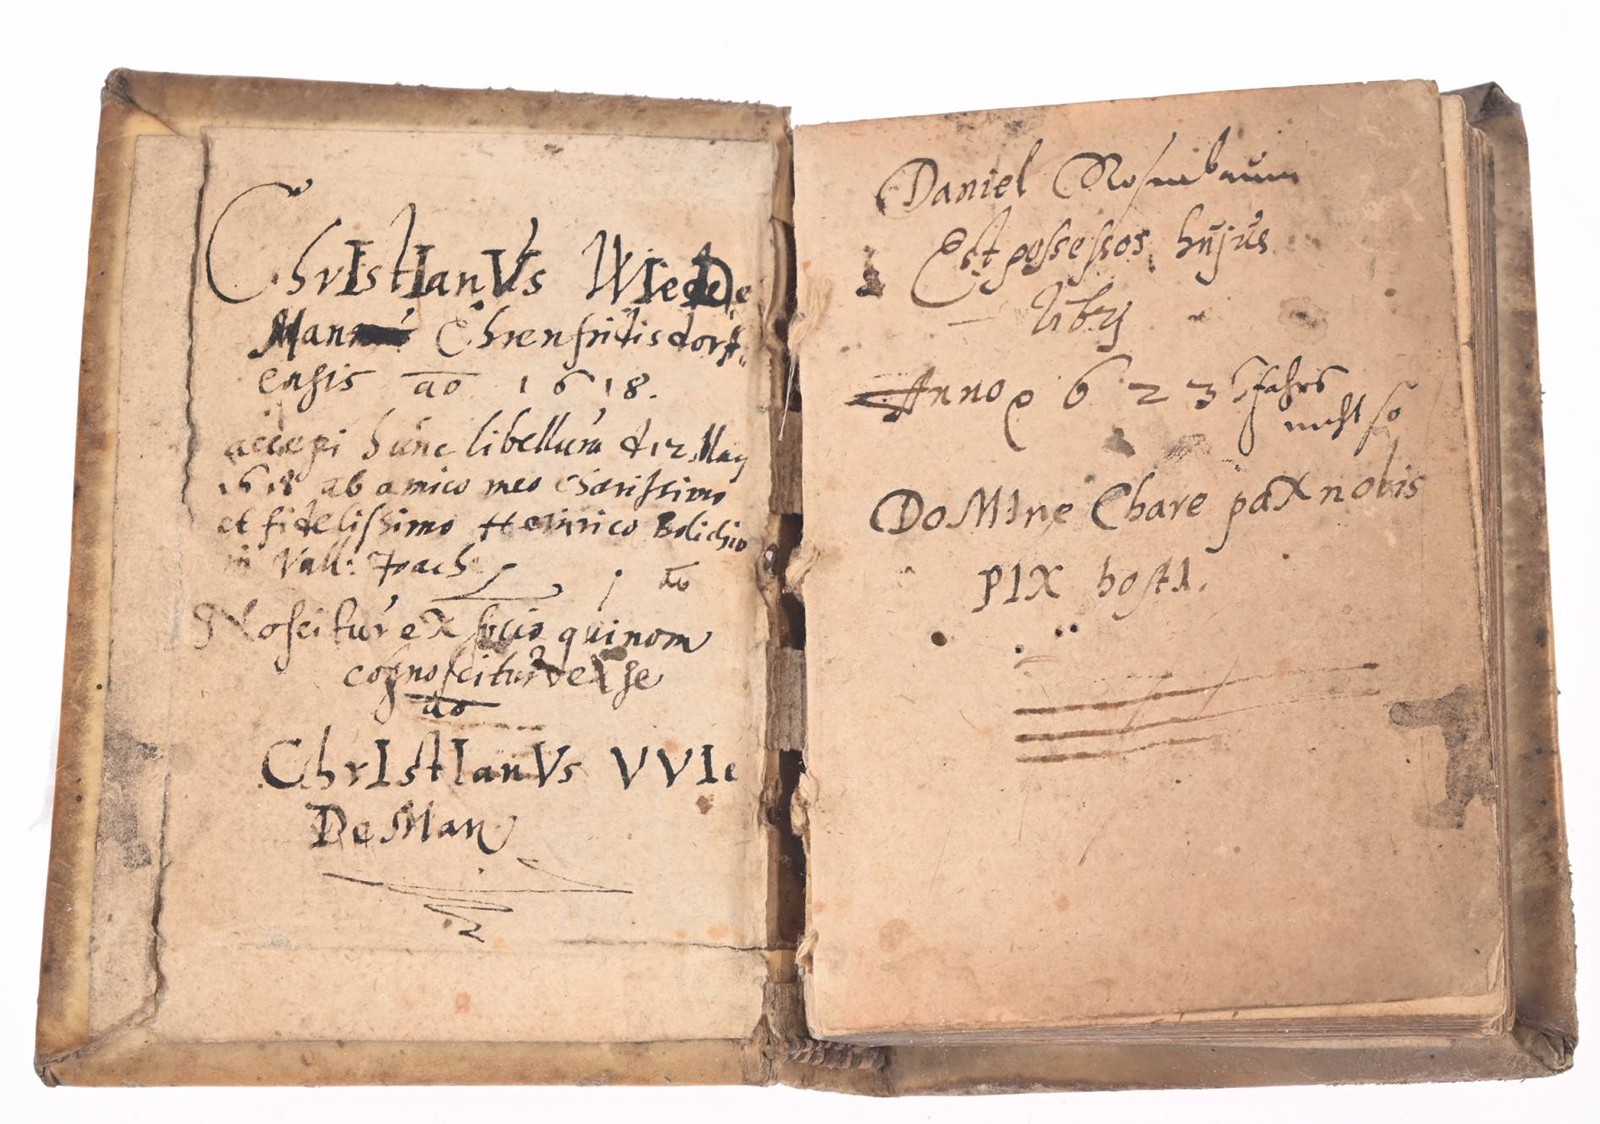 ChrIstIanVs WIeDe
Man Ehrenfridisdorff
ensis ao 1618.
accepi hunc libellum d 12 May
1618 ab amico meo charissimo
et fidelissimo Heinrico Bolichio
in Vall: Joach
ao
Noscitur ex socio qui non
cognoscitur ex se
ao
ChrIstIanVs VVIe
DeMan
Daniel Rosenbaum
Est possessos hujus
librj
Anno 623 Jahrs
nicht so
DoMIne Chare paX nobis
PIX hostI.